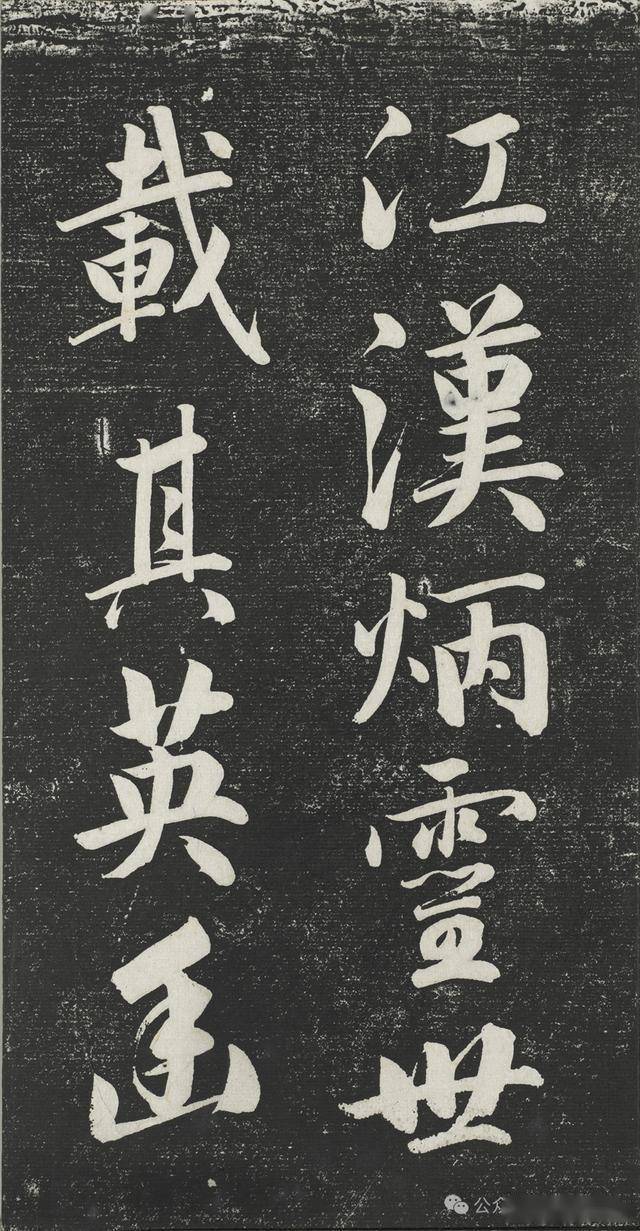 江漢炳靈世
載其英
公众